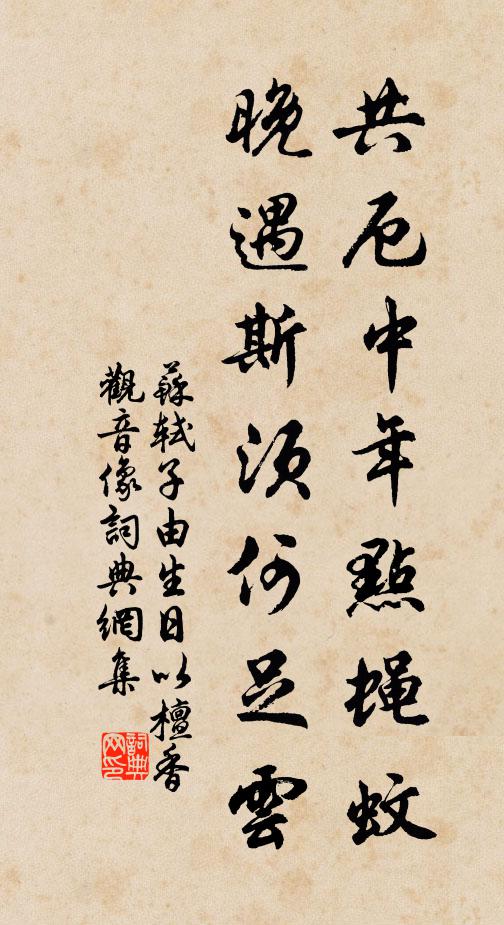 共厄中年點蝇蚊
晚遇斯須何足雲
蘇軾子由生日以檀香
觀音像詞典網集
詞典
网印